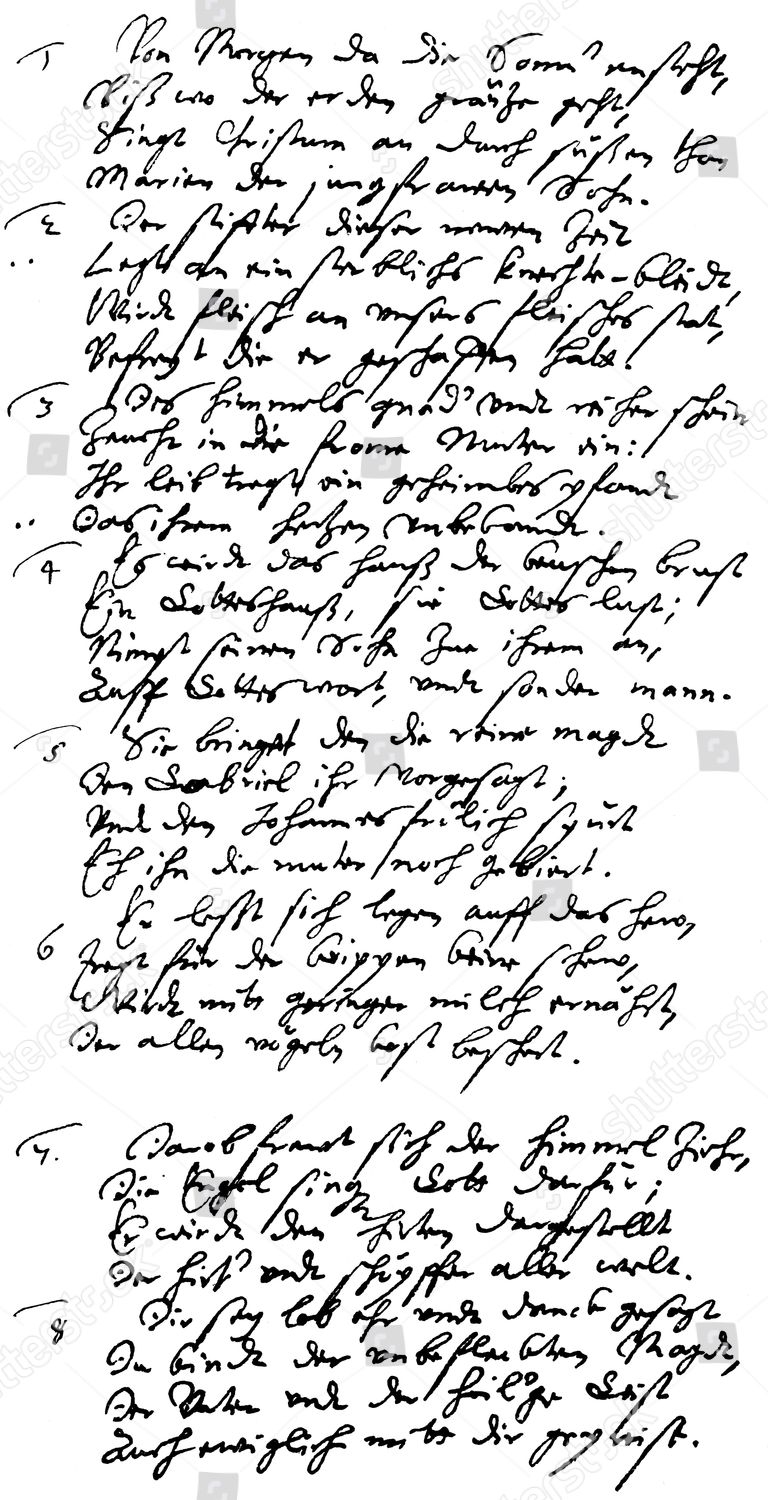 1 Von Morgen da die Sonn' ensteht,
Biß wo der erden gräntze geht,
Singt Christum an durch süßen thon
Marien der jungfrawen Sohn.
2 Der stiffter dieser newen Zeit
Legt an ein sterblichs knechte-kleidt,
Wird fleisch an unsers fleisches stat,
Befreyt die er geschaffen hatt.
3 Des himmels gnad' undt reicher schein
Zeucht in die frome Muter ein:
Ihr leib tregt ein geheimbes pfandt
Das ihrem hertzen unbekandt.
4 Es wirdt das hauß der keuschen brust
Ein Gotteshauß, sie Gottes lust;
Nimpt seinen Sohn zue ihrem an,
Auff Gottes wort, undt sonder mann.
5 Sie bringet den die reine magdt
Den Gabriel ihr Vorgesagt;
Undt den Johannes frölich spürt
Eh ihn die muter noch gebiert.
6 Er lesst sich legen auff das hew,
Tregt für der krippen keine schew,
Wirdt mitt geringer milch ernährt,
Der allen vögeln kost beschert.
7. Darob frewt sich der himmel Ziehr,
Die Engel singen Gott darfür;
Er wirdt den hirten dargestellt
Der hirt' undt schöpffer aller welt.
8 Dir sey lob ehr undt danck gesagt
Du kindt der unbefleckten Magdt,
Der Vater undt der heil'ge Geist
Auch ewiglich mitt dir gepreist.
shutterstock